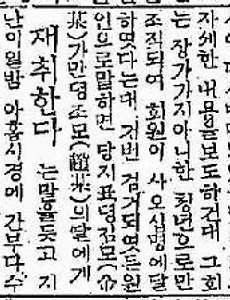 자세한 내용을보도하건대 그회
는 장가가지아니한 청년으로만
조직되여 회원이 사오십명에달
하엿다는대 저번 검거되엿든원
인으로말하면 당지표덩김모(金
某)가만덩조모(趙某)의딸에게
재취한다 는말을듯고 지
난이일밤 아홉시경에 간부다수